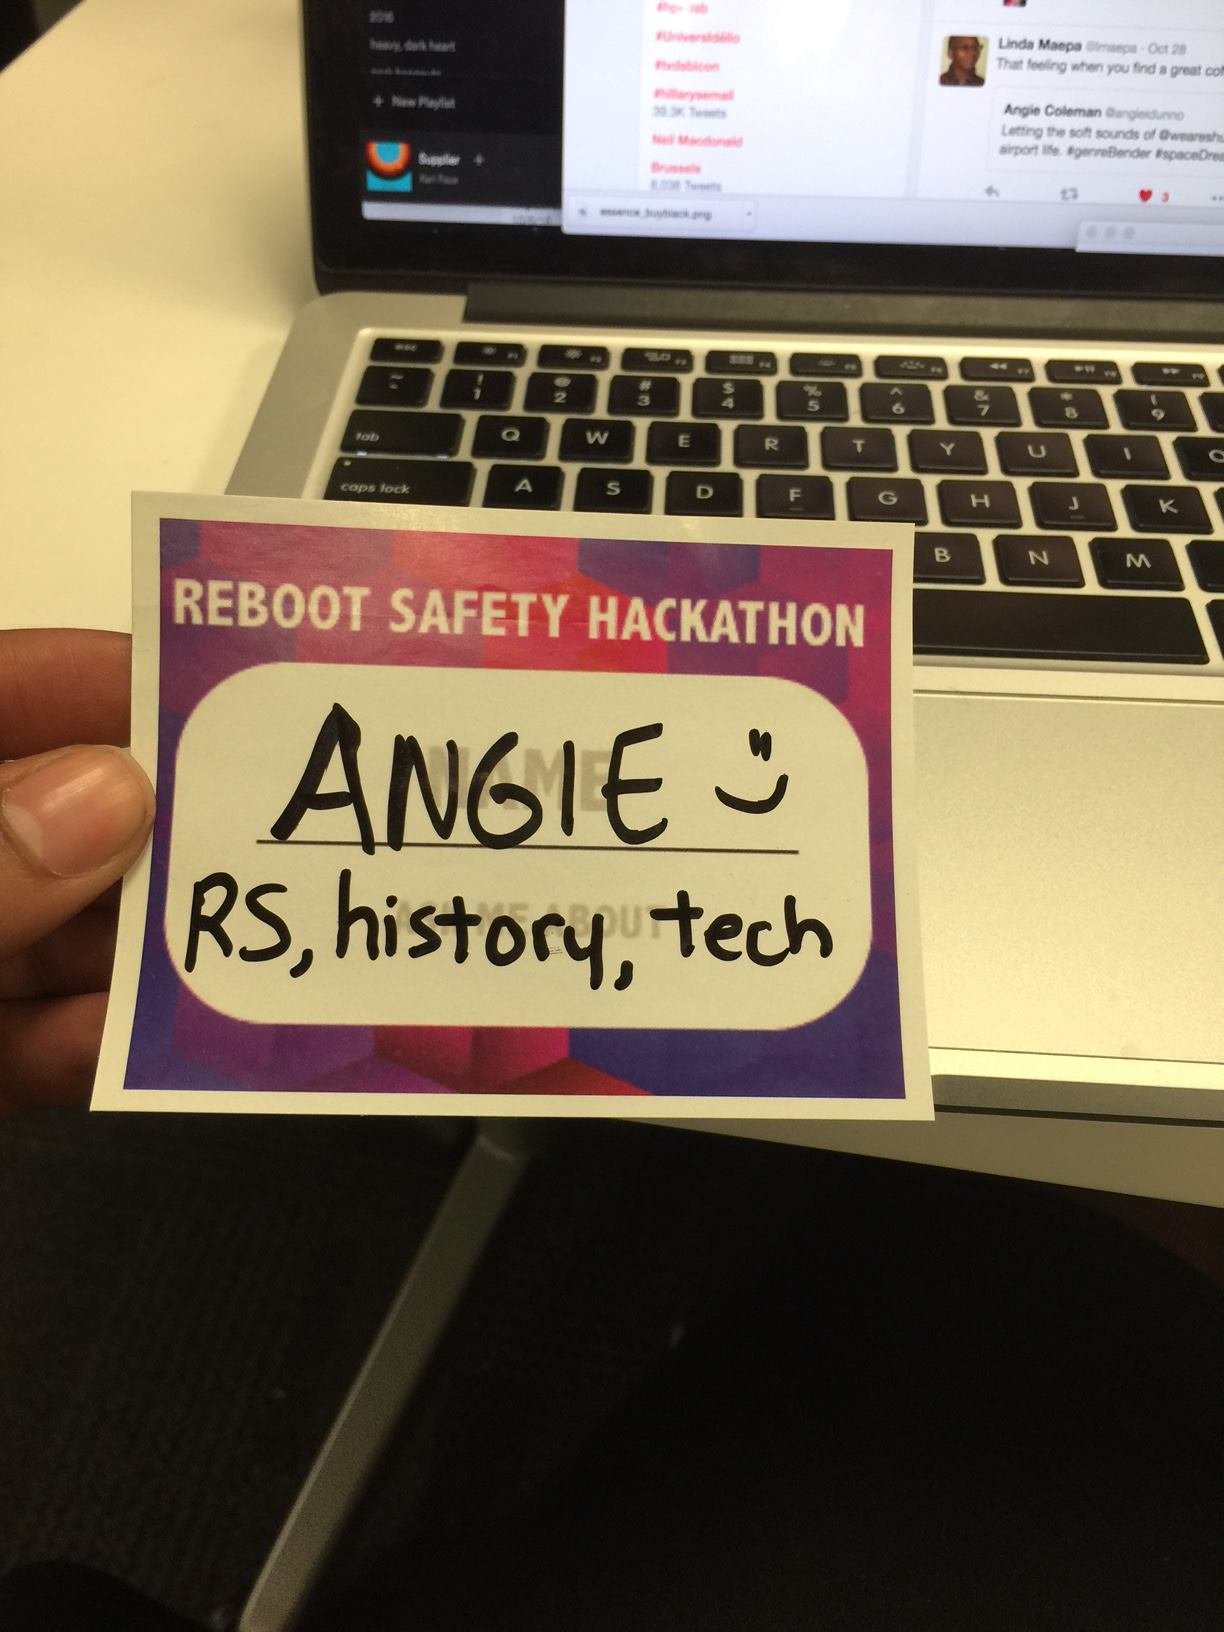 2016
heavy, dark heart
+ New Playlist
Supplier +
#UniversIdéllo
#tvdsbicon
#hillarysemail
39.3K Tweets
Neil Macdonald
Brussels
8,038 Tweets
essence_buyblack.png
Linda Maepa @lmaepa · Oct 28
That feeling when you find a great
Angie Coleman @angieidunno
Letting the soft sounds of
airport life. #genreBender
3
esc
F1 F2 F3 F4 F5 F6 F7 F8 F9
~ ! 1 @ 2 # 3 $ 4 % 5 ^ 6 & 7 * 8 ( 9
tab Q W E R T Y U I
caps lock A S D F G H J K
B N M
REBOOT SAFETY HACKATHON
NAME
ANGIE
ASK ME ABOUT
RS, history, tech